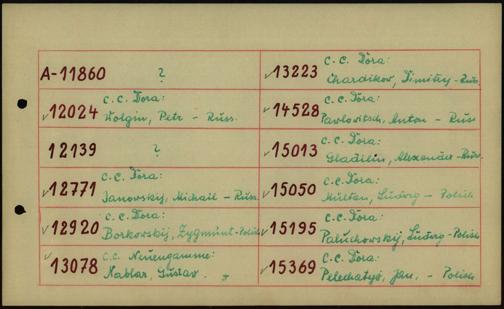 A-11860 ?
12024 C.C. Dora:
Wolgin, Petr - Russ.
12139 ?
12771 C.C. Dora:
Janowskij, Michail - Russ.
12920 C.C. Dora:
Borkowskij, Zygmunt - Polish
13078 C.C. Neuengamme:
Nablar, Gustav.
13223 C.C. Dora:
Chardikov, Dimitry - Russ.
14528 C.C. Dora:
Pavlovitsch, Anton - Russ
15013 C.C. Dora:
Gladilin, Alexander - Russ.
15050 C.C. Dora:
Multan, Ludwig - Polish
15195 C.C. Dora:
Paluchowskij, Ludwig - Polish
15369 C.C. Dora:
Pelechatyj, Jan. - Polish